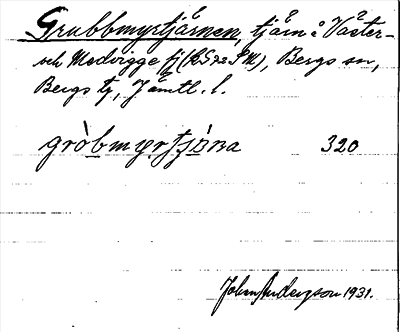 Grubbmyrtjärnen, tjärn å Väster-
och Medvigge fj (RS 72 S M), Bergs sn,
Bergs tg, Jämtl. l.
gròbmyrtjàna 320
John Anderson 1931.